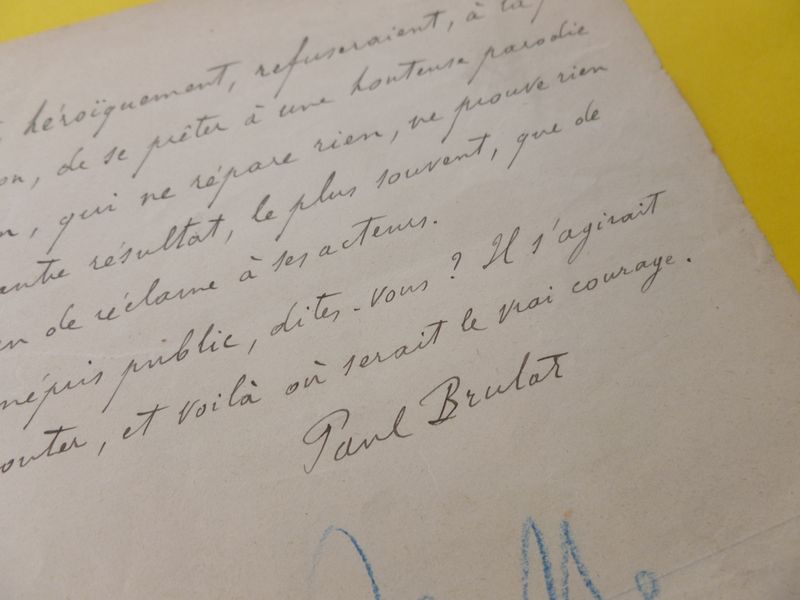 héroïquement, refuseraient, à la
on, de se prêter à une honteuse parodie
n, qui ne répare rien, ne prouve rien
autre résultat, le plus souvent, que de
en de réclame à ses acteurs.
mépris public, dites-vous ? Il s'agirait
onter, et voilà où serait le vrai courage.
Paul Brulat